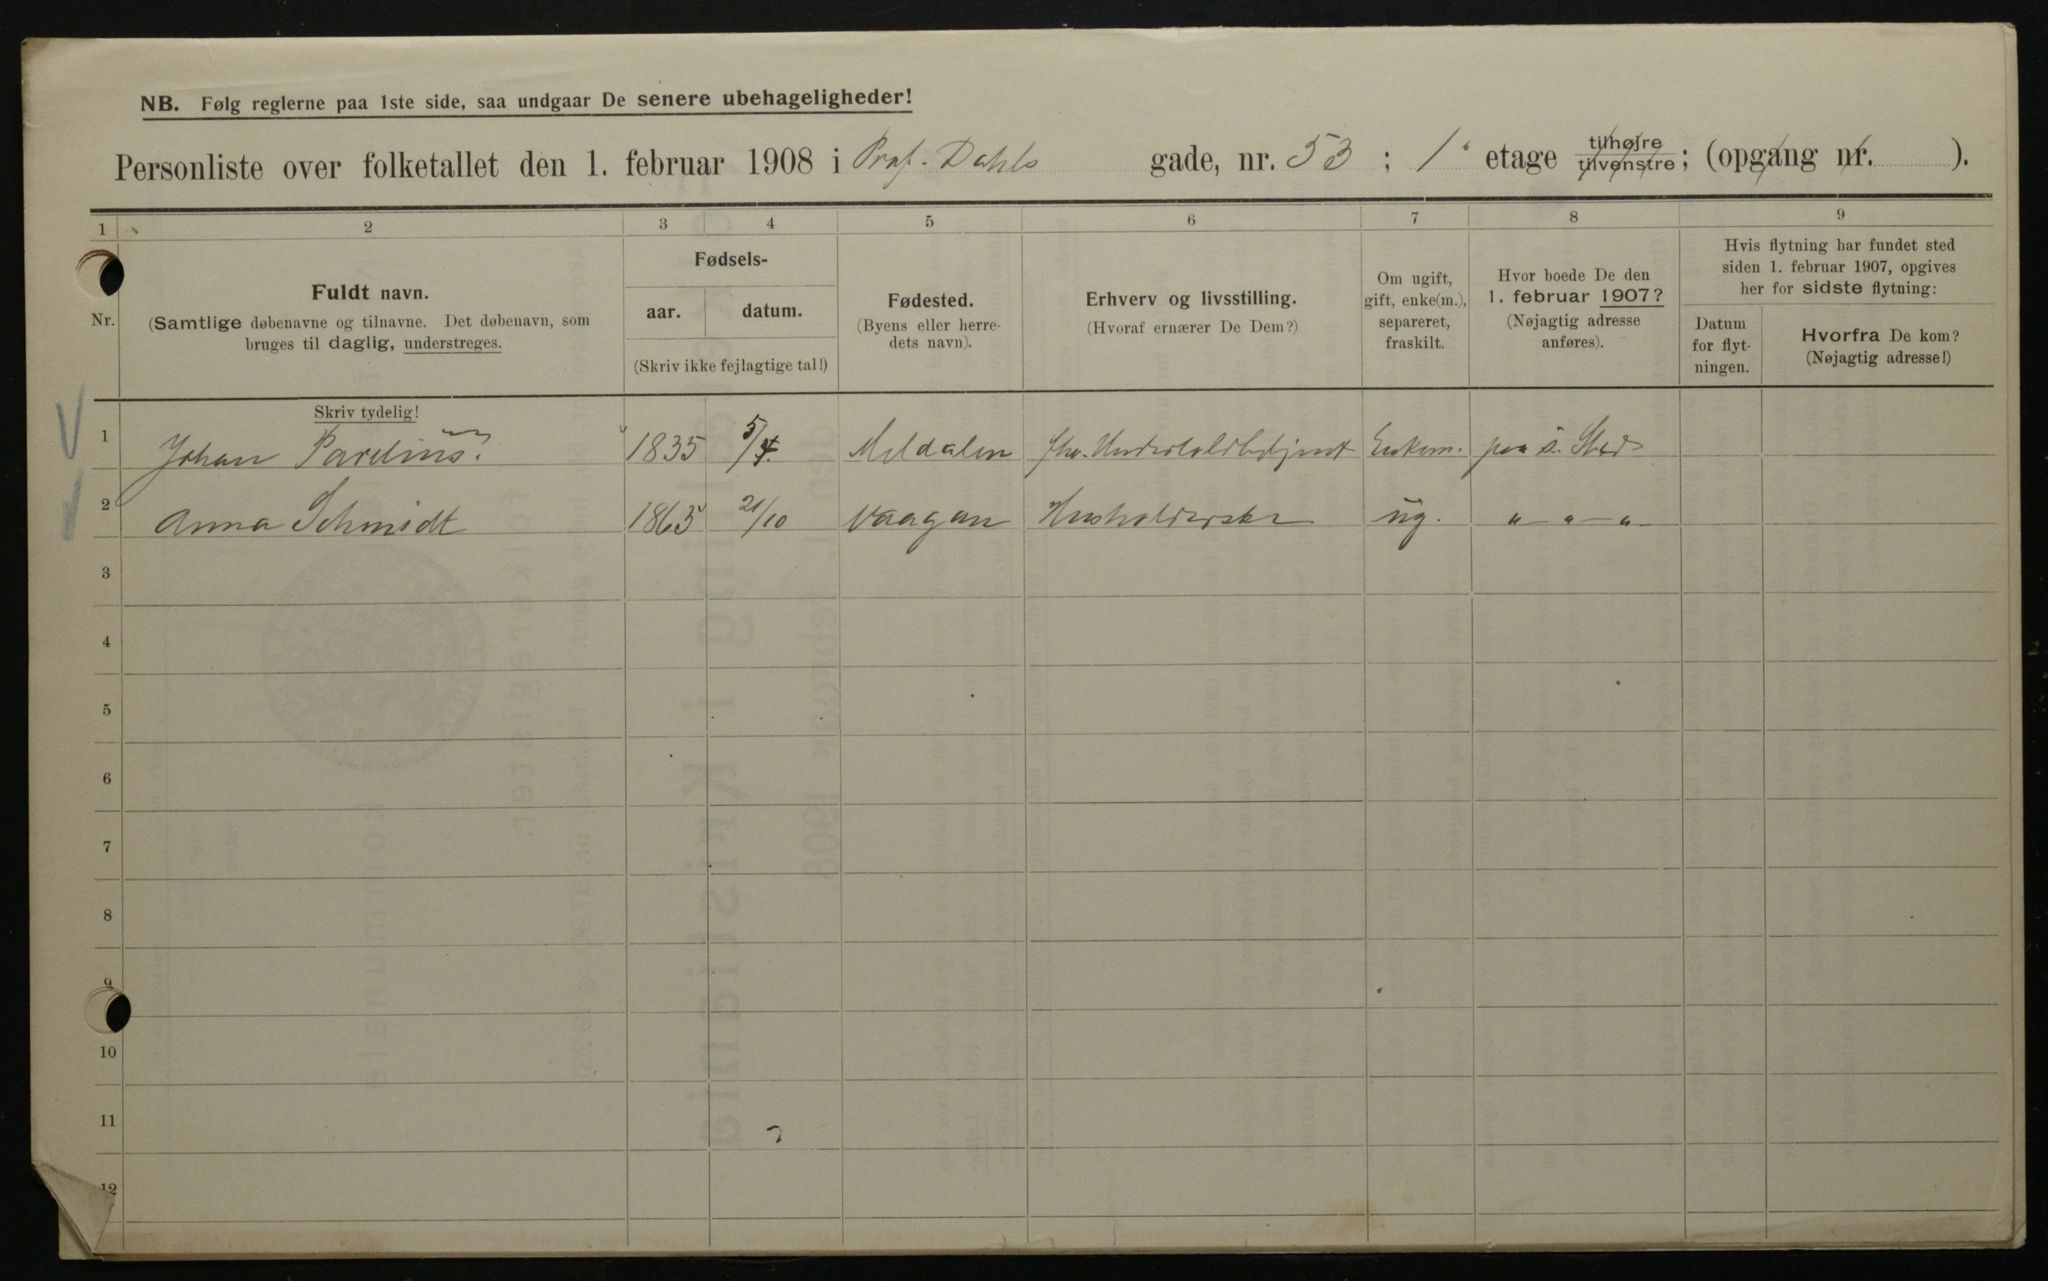 NB. Følg reglerne paa 1ste side, saa undgaar De senere ubehageligheder!
Personliste over folketallet den 1. februar 1908 i Prof. Dahls gade, nr. 53 ; 1' etage tilhøjre tilvenstre ; (opgang nr. ).
1 2 3 4 5 6 7 8 9
Nr.
Fuldt navn.
(Samtlige døbenavne og tilnavne. Det døbenavn, som
bruges til daglig, understreges.
Fødsels-
aar. datum.
(Skriv ikke fejlagtige tal!)
Fødested.
(Byens eller herre-
dets navn).
Erhverv og livsstilling.
(Hvoraf ernærer De Dem?)
Om ugift,
gift, enke(m.),
separeret,
fraskilt.
Hvor boede De den
1. februar 1907?
(Nøjagtig adresse
anføres).
Hvis flytning har fundet sted
siden 1. februar 1907, opgives
her for sidste flytning:
Datum
for flyt-
ningen.
Hvorfra De kom?
(Nøjagtig adresse!)
Skriv tydelig!
1 Johan Parelius. 1835 5/4. Meldalen Enkem. paa s. Sted
2 Anna Schmidt 1865 21/10 Vaagan Husholderske ug. " — " — " —
3
4
5
6
7
8
9
10
11
12